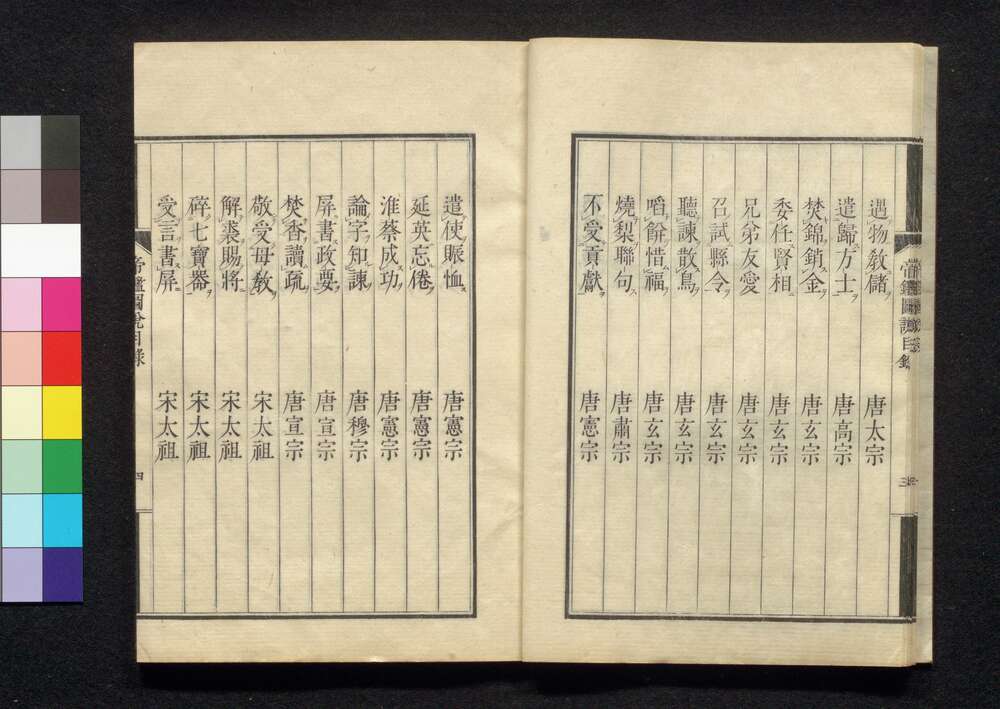 遇物敎儲 唐太宗
遣歸方士 唐高宗
焚錦銷金 唐玄宗
委任賢相 唐玄宗
兄弟友愛 唐玄宗
召試縣令 唐玄宗
聽諫散鳥 唐玄宗
啗餠惜福 唐玄宗
燒梨聯句 唐肅宗
不受貢獻 唐憲宗
遣使賑恤 唐憲宗
延英忘倦 唐憲宗
淮蔡成功 唐憲宗
論字知諫 唐穆宗
屏書政要 唐宣宗
焚香讀疏 唐宣宗
敬受母敎 宋太祖
解裘賜將 宋太祖
碎七寶器 宋太祖
受言書屏 宋太祖
帝鑑圖說目錄 四